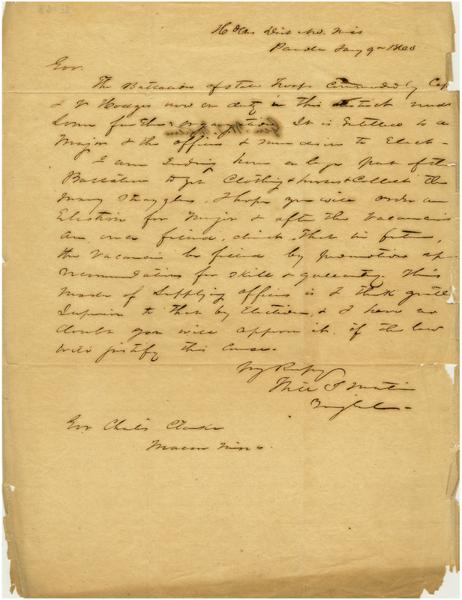 Hd Qrs Dist N. Miss
Panola Jany 9th 186
Gov.
The Battalion of State Troops Commanded by Cap
Hodges now on duty in this district needs
Some further organization. It is Entitled to a
Major & the officers & men desire to Elect.
I am sending home a large part of the
Battalion to get Clothing & horses & Collect the
many Stragglers. I hope you will order an
Election for Major & after the Vacancies
are once filled, direct that in future,
the Vacancies be filled by promotion
recommendations for skill & gallantry. This
mode of Supplying officers is I think quite
Superior to that by Election, & I have no
doubt you will approve it, if the law
will justify this Course.
Very Respy
Will
Brig Genl
Gov Chas Clark
Macon Miss